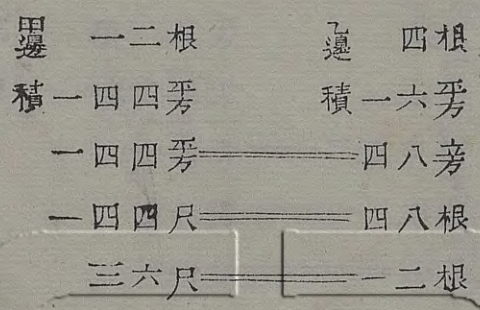 甲邊 一二根 乙邊 四根
積一四四平方 積一六平方
一四四平方══四八平方
一四四尺══四八根
三六尺══一二根